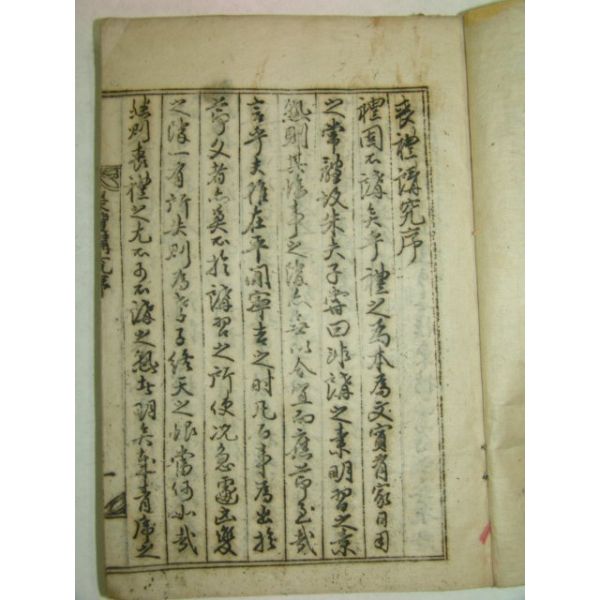 喪禮講究序
禮固不講矣乎禮之爲本爲文實有家日用
之常體故朱夫子嘗曰非講之素明習之素
熟則其臨事之際亦無以合宜而應節至哉
言乎夫雖在平閒寧吉之時凡百事爲出於
節文者亦莫不於講習之所使況急遽凶變
之際一有所失則爲孝子終天之恨當何如哉
然則喪禮之尤不可不講之熟者明矣席之
喪禮講究序
一